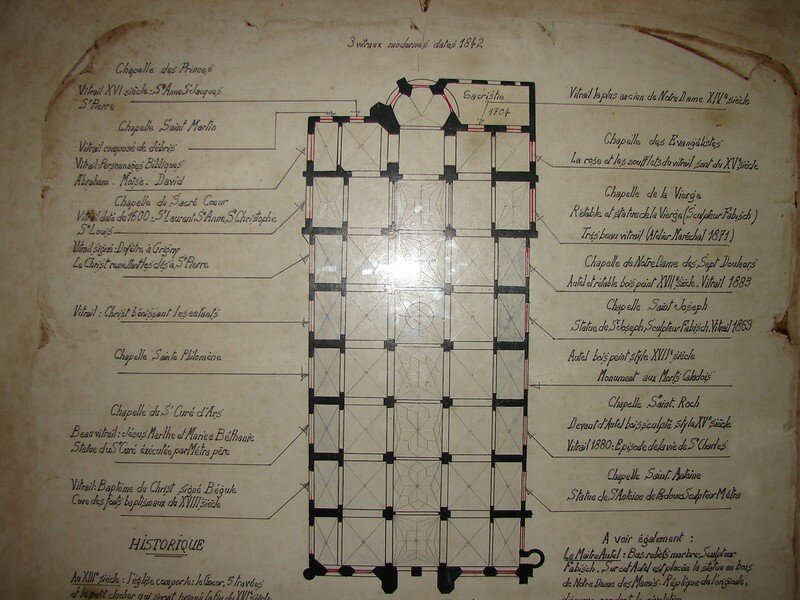 3 vitraux modernes datés 1842
Chapelle des Princes
Vitrail XVIe siècle : Ste Anne. St Jacques
St Pierre
Chapelle Saint Martin
Vitrail composé de débris
Vitrail: Personnages Bibliques
Abraham. Moïse. David
Chapelle du Sacré Coeur
Vitrail daté de 1600 : St Laurent. Ste Anne. St Christophe
St Louis
Vitrail signé: Dufêtre à Grigny
Le Christ remettant les clés à St Pierre
Vitrail : Christ bénissant les enfants
Chapelle Sainte Philomène
Chapelle du St Curé d'Ars
Beau vitrail : Jésus Marthe et Marie à Béthanie
Statue du St Curé éxécutée par Métra père
Vitrail: Baptême du Christ signé Bégule
Cuve des fonts baptismaux du XVIIIe siècle
HISTORIQUE
Au XIIIe siècle : l'église comporte : le Choeur, 5 travées
et le petit clocher qui servit jusqu'à la fin du XVIe siècle
Sacristie
1704
Vitrail le plus ancien de Notre Dame XIVe siècle
Chapelle des Evangélistes
La rose et les soufflets du vitrail sont du XVe siècle
Chapelle de la Vierge
Rétable et statue de la Vierge (Sculpteur Fabisch)
Très beau vitrail (Atelier Maréchal 1871)
Chapelle de Notre Dame des Sept Douleurs
Autel et rétable bois peint XVIIe siècle. Vitrail 1883
Chapelle Saint Joseph
Statue de St Joseph, Sculpteur Fabisch. Vitrail 1869
Autel bois peint style XVIIe siècle
Monument aux Morts Caladois
Chapelle St Roch
Devant d'Autel bois sculpté, style XVe siècle
Vitrail 1880 : Episode de la vie de St Charles
Chapelle Saint Antoine
Statue de St Antoine de Padoue Sculpteur Métra
A voir également :
Le Maître Autel : Bas reliefs marbre, Sculpteur
Fabisch. Sur cet Autel est placée la statue en bois
de Notre Dame des Marais. Réplique de l'originale,